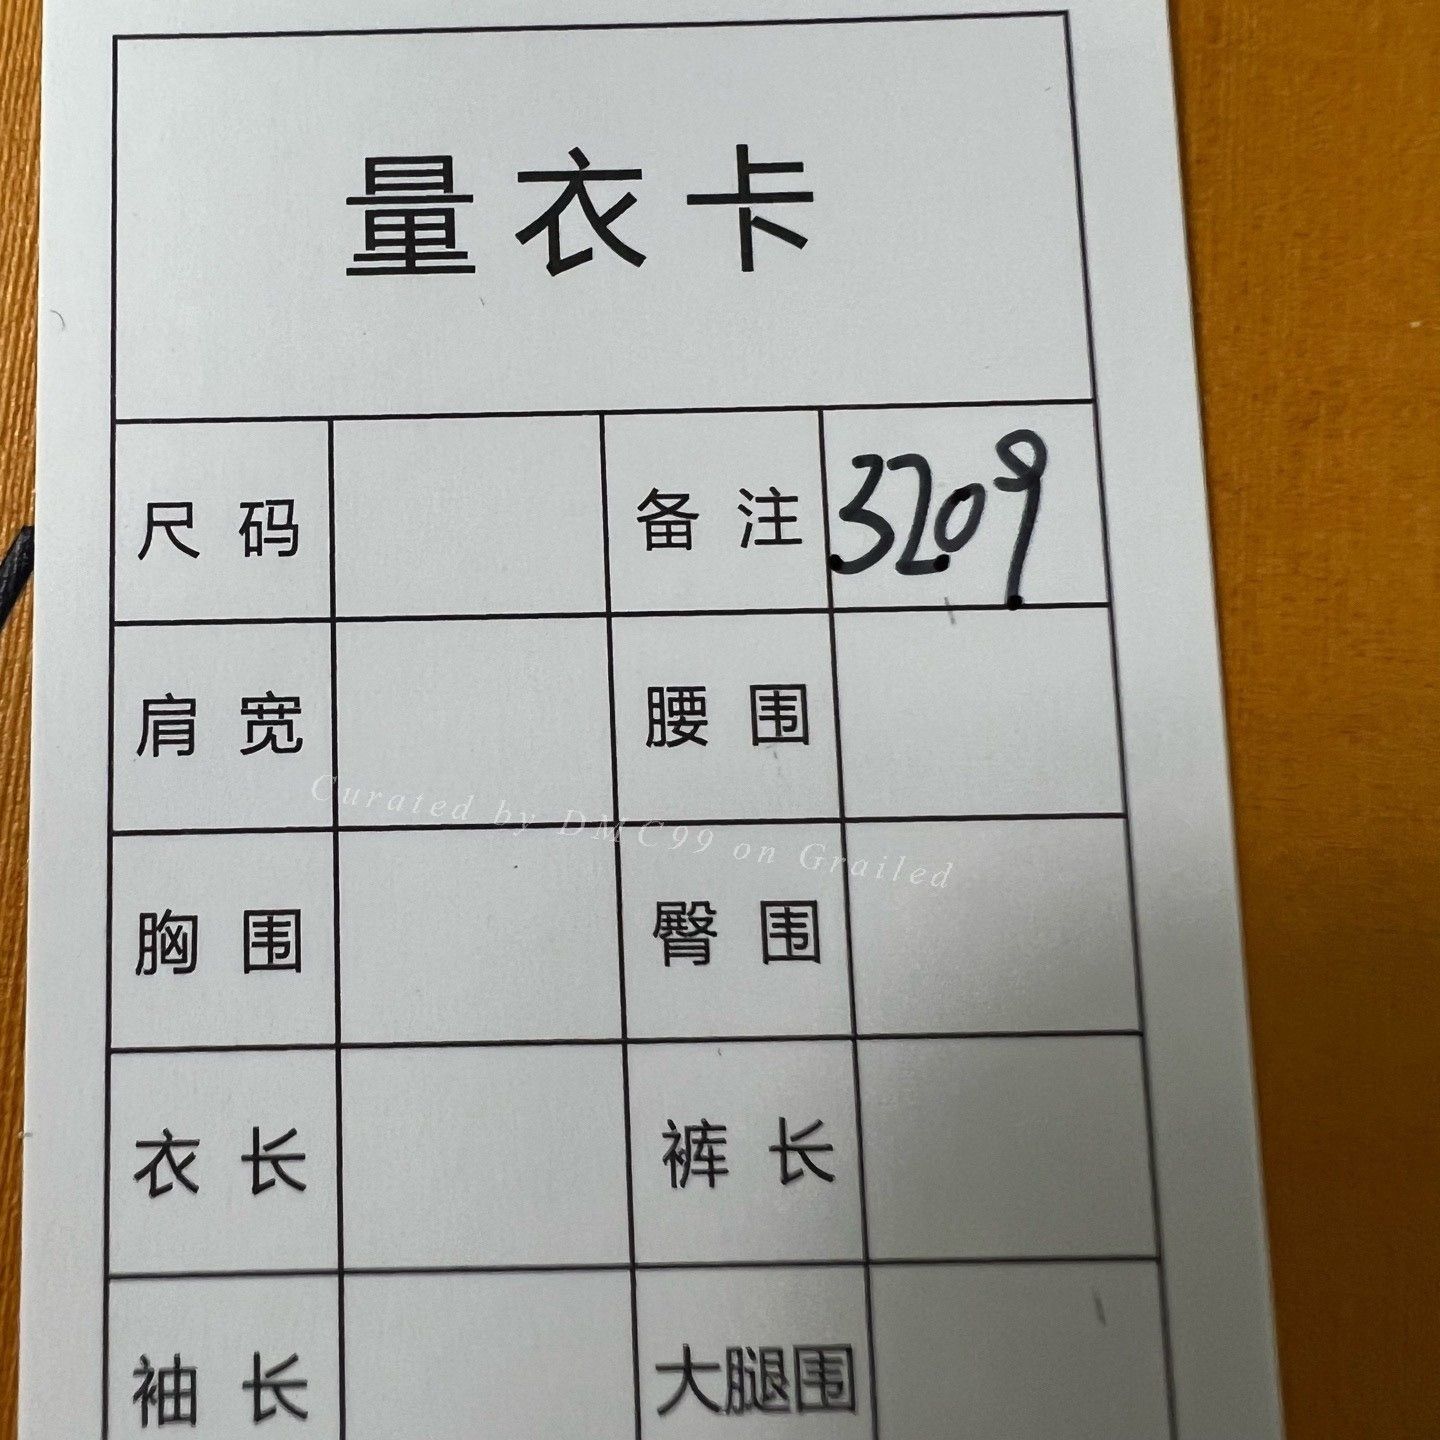 量衣卡
尺码 备注 3209
肩宽 腰围
Curated by DMC99 on Grailed
胸围 臀围
衣长 裤长
袖长 大腿围